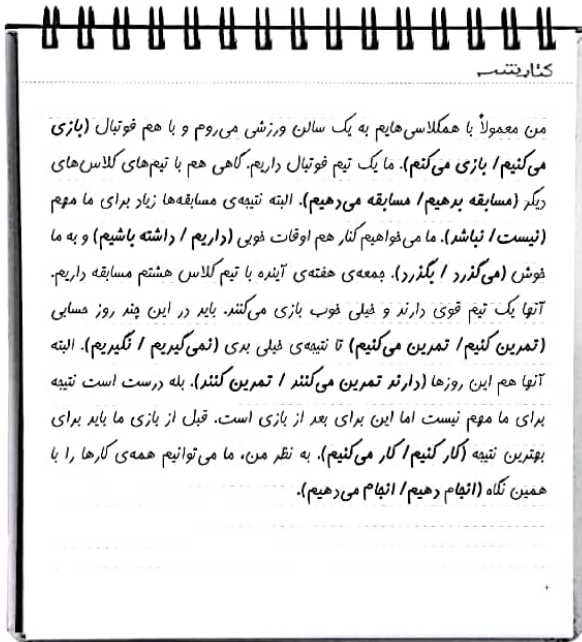 من معمولاً با همکلاسی‌هایم به یک سالن ورزشی می‌روم و با هم فوتبال (بازی
می‌کنیم/ بازی می‌کنم). ما یک تیم فوتبال داریم. گاهی هم با تیم‌های کلاس‌های
دیگر (مسابقه بدهیم/ مسابقه می‌دهیم). البته نتیجه‌ی مسابقه‌ها زیاد برای ما مهم
(نیست/ نباشد). ما می‌خواهیم کنار هم اوقات خوبی (داریم / داشته باشیم) و به ما
خوش (می‌گذرد / بگذرد). جمعه‌ی هفته‌ی آینده با تیم کلاس هشتم مسابقه داریم.
آنها یک تیم قوی دارند و خیلی خوب بازی می‌کنند. باید در این چند روز حسابی
(تمرین کنیم/ تمرین می‌کنیم) تا نتیجه‌ی خیلی بدی (نمی‌گیریم / نگیریم). البته
آنها هم این روزها (دارند تمرین می‌کنند / تمرین کنند). بله درست است نتیجه
برای ما مهم نیست اما این برای بعد از بازی است. قبل از بازی ما باید برای
بهترین نتیجه (کار کنیم/ کار می‌کنیم). به نظر من، ما می‌توانیم همه‌ی کارها را با
همین نگاه (انجام دهیم/ انجام می‌دهیم).